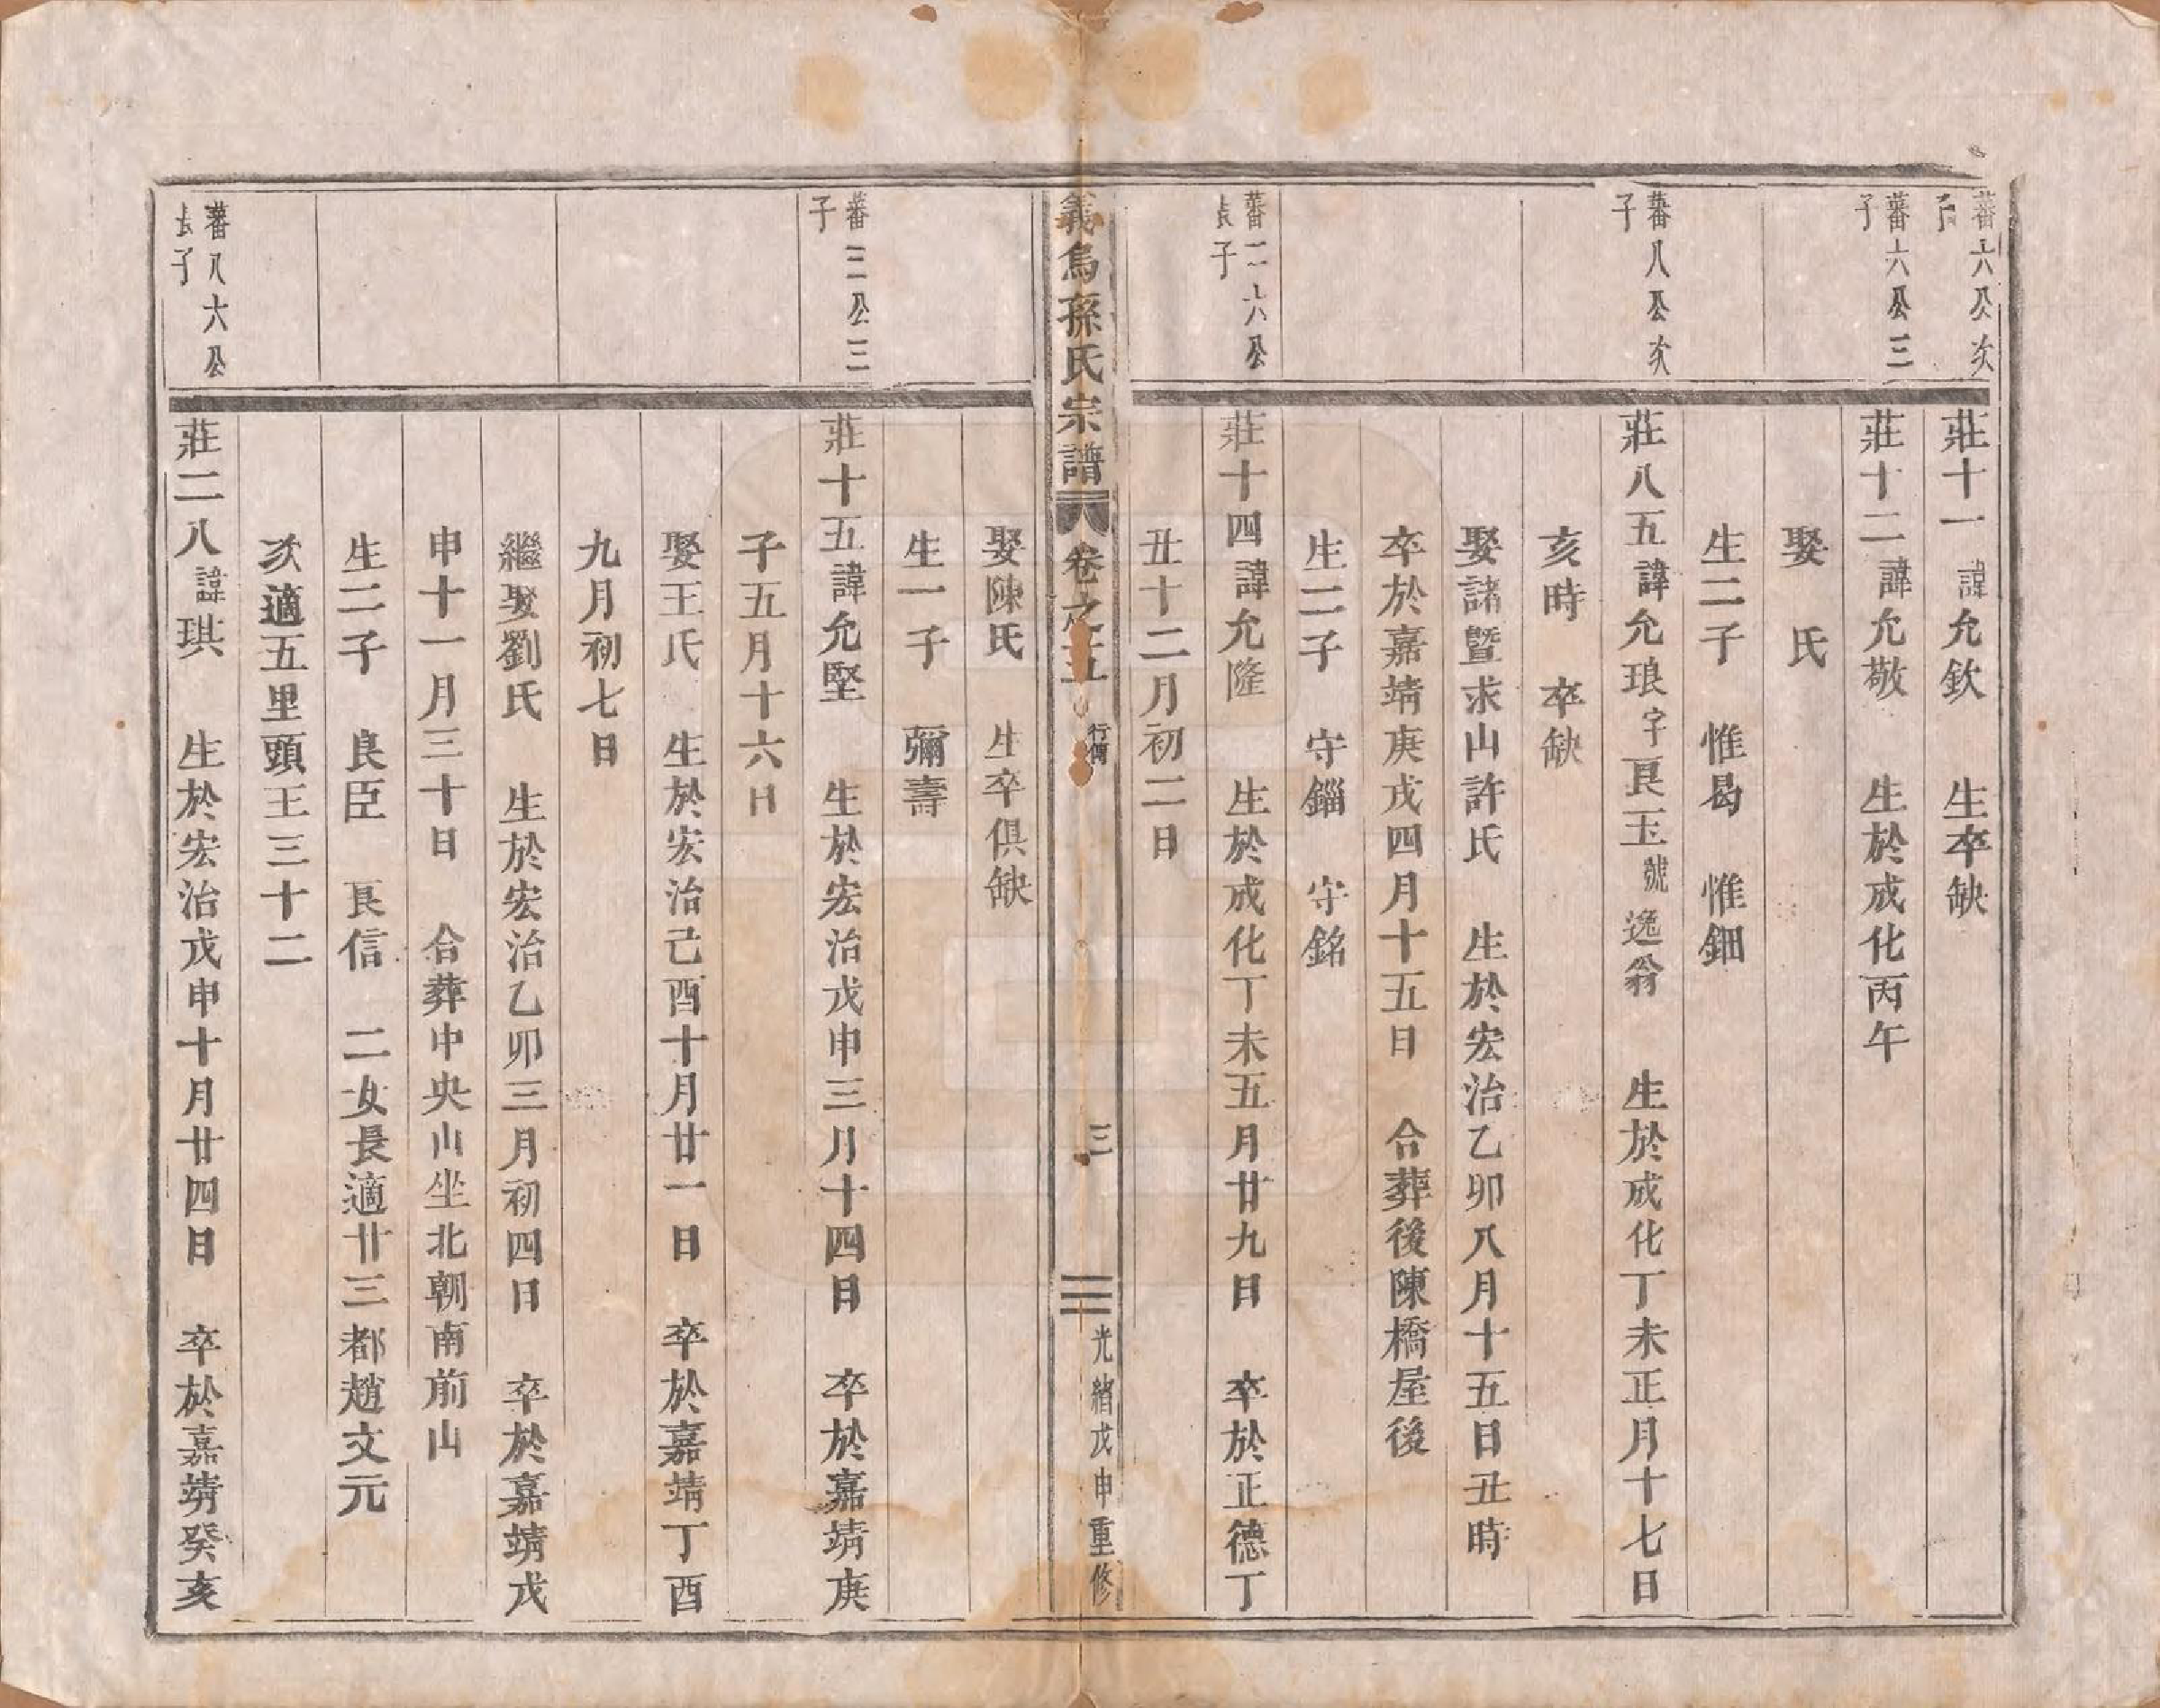 蕃六公次子
莊十一諱允欽　生卒缺
蕃六公三子
莊十二諱允敬　生於成化丙午
娶　氏
生二子　惟曷　惟鈿
蕃八公次子
莊八五諱允琅字良玉號逸翁　生於成化丁未正月十七日
亥時　卒缺
娶諸暨求山許氏　生於宏治乙卯八月十五日丑時
卒於嘉靖庚戌四月十五日　合葬後陳橋屋後
生二子　守錙　守銘
蕃二六公長子
莊十四諱允隆　生於成化丁未五月廿九日　卒於正德丁
丑十二月初二日
義烏孫氏宗譜　卷之五　行傳　三　光緒戊申重修
娶陳氏　生卒俱缺
生一子　彌壽
蕃三公三子
莊十五諱允堅　生於宏治戊申三月十四日　卒於嘉靖庚
子五月十六日
娶王氏　生於宏治己酉十月廿一日　卒於嘉靖丁酉
九月初七日
繼娶劉氏　生於宏治乙卯三月初四日　卒於嘉靖戊
申十一月三十日　合葬中央山坐北朝南前山
生二子　良臣　良信　二女長適廿三都趙文元
次適五里頭王三十二
蕃八六公長子
莊二八諱琪　生於宏治戊申十月廿四日　卒於嘉靖癸亥